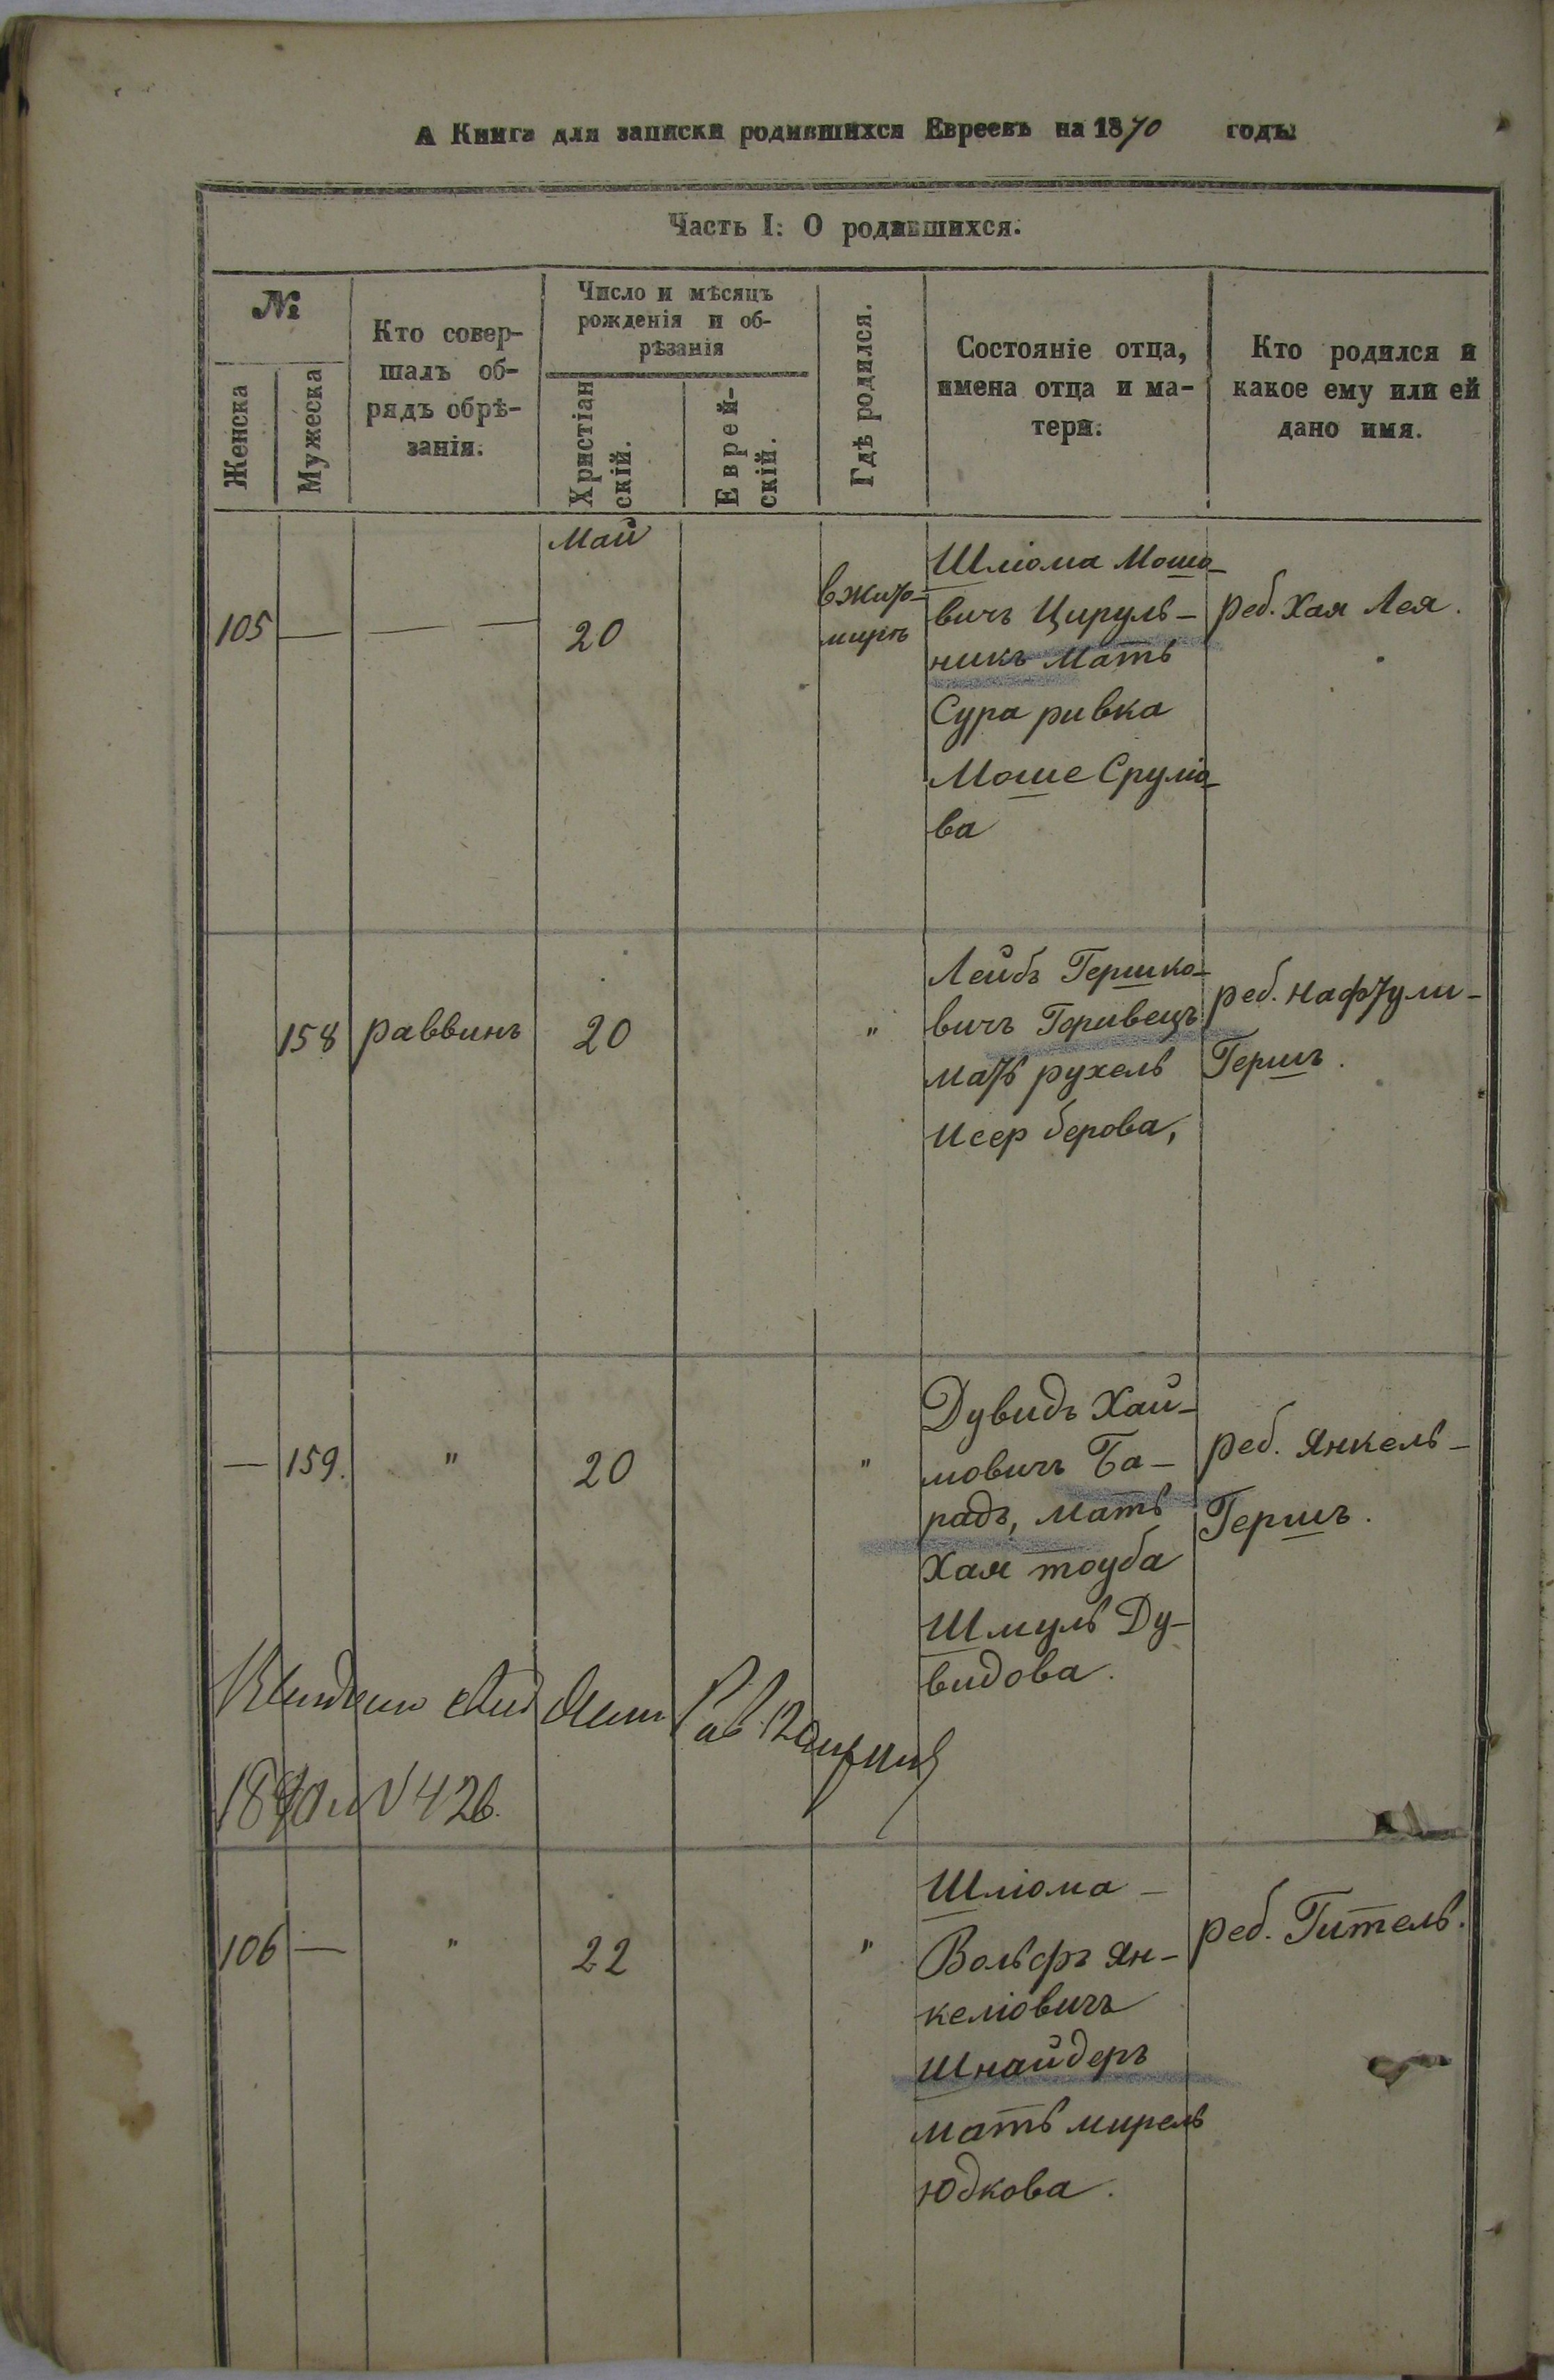 А Книга для записки родившихся Евреевъ на 1870 годъ
Часть I: О родившихся.
№
Женска
Мужеска
Кто совер-
шалъ об-
рядъ обрѣ-
занія.
Число и мѣсяцъ
рожденія и об-
рѣзанія
Христіан
скій.
Еврей-
скій.
Гдѣ родился.
Состояніе отца,
имена отца и ма-
тери.
Кто родился и
какое ему или ей
дано имя.
105
—
— —
Май
20
вжито-
мирѣ
Шліома Мошо-
вичъ Цируль-
никъ мать
Сура ривка
Моше Сруліо-
ва
реб. Хая Лея.
158
раввинъ
20
"
Лейбъ Гершко-
вичъ Горивецъ
мать рухель
Исер берова,
реб. нафтули-
Гершъ.
—
159.
"
20
"
Дувидъ Хай-
мовичъ Ба-
радъ, мать
Хая тоуба
Шмуль Ду-
видова.
реб. Янкель-
Гершъ.
№ 426.
106
—
"
22
"
Шліома -
Вольфъ Ян-
келіовичъ
Шнайдеръ
мать мирель
Юдкова.
реб. Гитель.